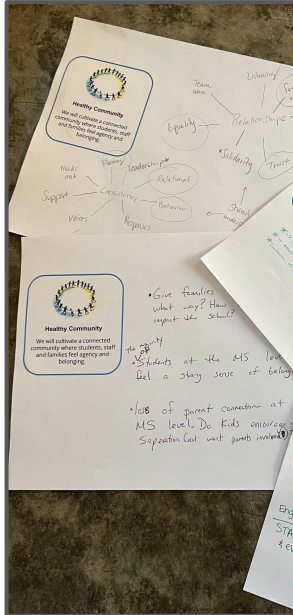 Healthy Community
We will cultivate a connected
community where students, staff
and families feel agency and
belonging.
Team
work
Listening
Equality
Relationships
Solidarity
Trust
Shared
Needs
met
Planning
Leadership
Relational
Support
Consistency
Behavior
Voices
Healthy Community
We will cultivate a connected
community where students, staff
and families feel agency and
belonging.
• Give families
what way? How
impact the school?
the majority
of
• Students at the MS leve
feel a strong sense of belong
• loss of parent connection at
MS level. Do Kids encourage
Seperation (not want parents involved)
Eng
STA
& ev